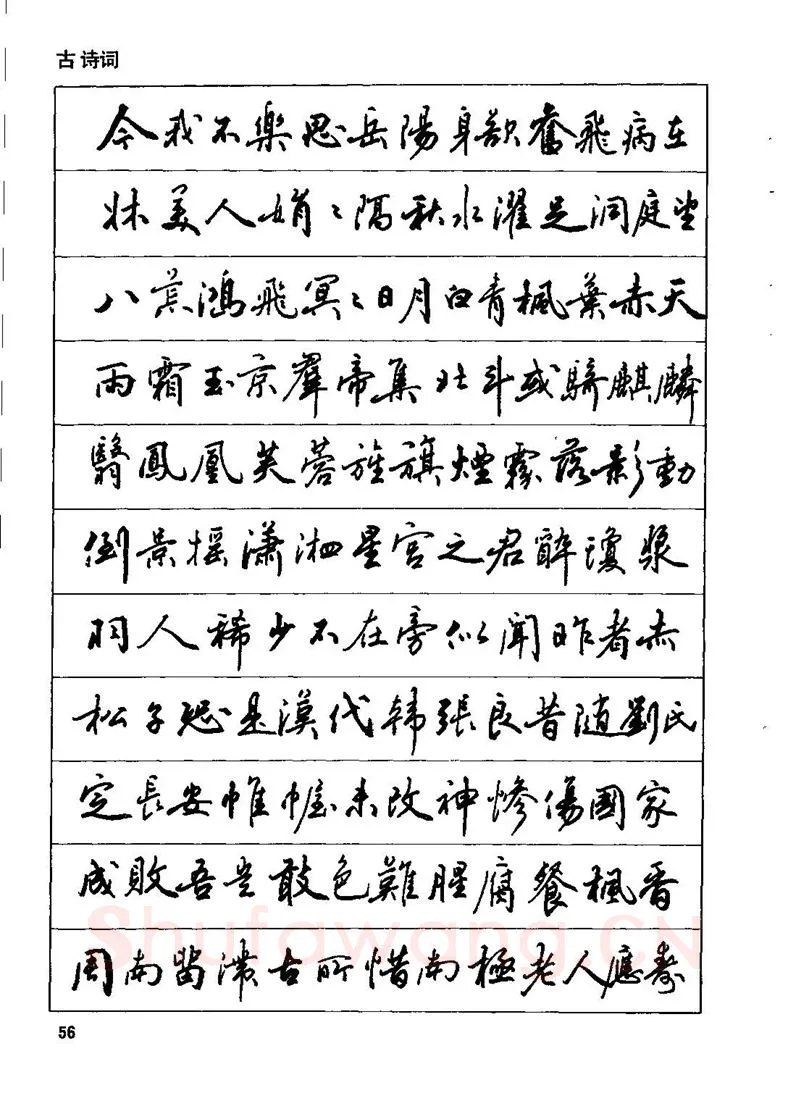 古诗词
今我不樂思岳陽身欲奮飛病在
牀美人娟〻隔秋水濯足洞庭望
八荒鴻飛冥〻日月白青楓葉赤天
雨霜玉京羣帝集北斗或騎麒麟
翳鳳凰芙蓉旌旗煙霧落影動
倒景搖瀟湘星宮之君醉瓊漿
羽人稀少不在旁似聞昨者赤
松子恐是漢代韓張良昔随劉氏
定長安帷幄未改神慘傷國家
成敗吾豈敢色難腥腐餐楓香
周南留滯古所惜南極老人應壽
56
Shufawang.CN